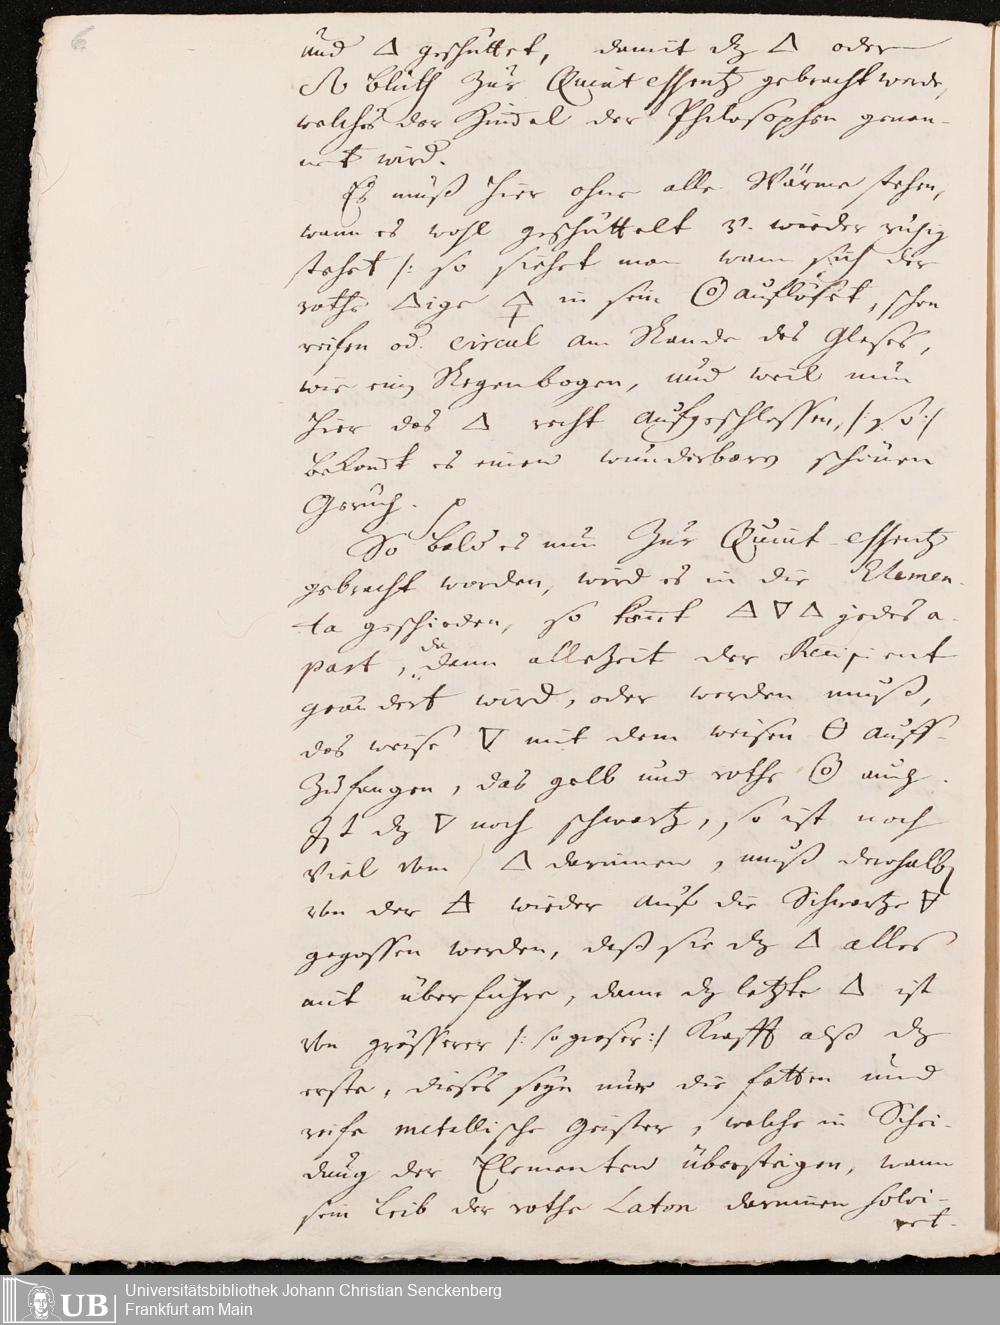 6
und 🜂 geschüttet, damit dz 🜂 oder
Blüth zur Quint essentz gebracht werde,
welches der Himel der Philosophen genen-
net wird.
Es muß hier ohne alle Wärme stehen,
wann es wohl geschüttelt u. wieder ruhig
stehet /: so siehet man wann sich der
rothe 🜂ige 🜍 in sein auflöset, schon
reifen od. circul am Rande des Glases,
wie ein Regenbogen, und weil nun
hier das 🜂 recht aufgeschlossen,
bekomt es einen wunderbarn schönen
Geruch.
So bald es nun zur Quint essentz
gebracht worden, wird es in die Elemen-
ta geschieden, so komt jedes a-
part, da dann allezeit der Recipient
geändert wird, oder werden muß,
das weise 🜄 mit dem weisen auff-
zufangen, das gelb und rothe auch.
Ist dz 🜄 noch schwartz, so ist noch
viel vom 🜂 darinnen, muß derohalben
von der 🜁 wieder auf die Schwartze 🜃
gegossen werden, daß sie dz 🜂 alles
mit überführe, dann dz letzte 🜂 ist
von grösserer /: so groser :/ Krafft alß dz
erste, dieses seyn nur die fetten und
reife metallische Geister, welche in Schei-
dung der Elementen übersteigen, wann
sein Leib der rothe Laton darinnen solvi-
ret.
UB
Universitätsbibliothek Johann Christian Senckenberg
Frankfurt am Main